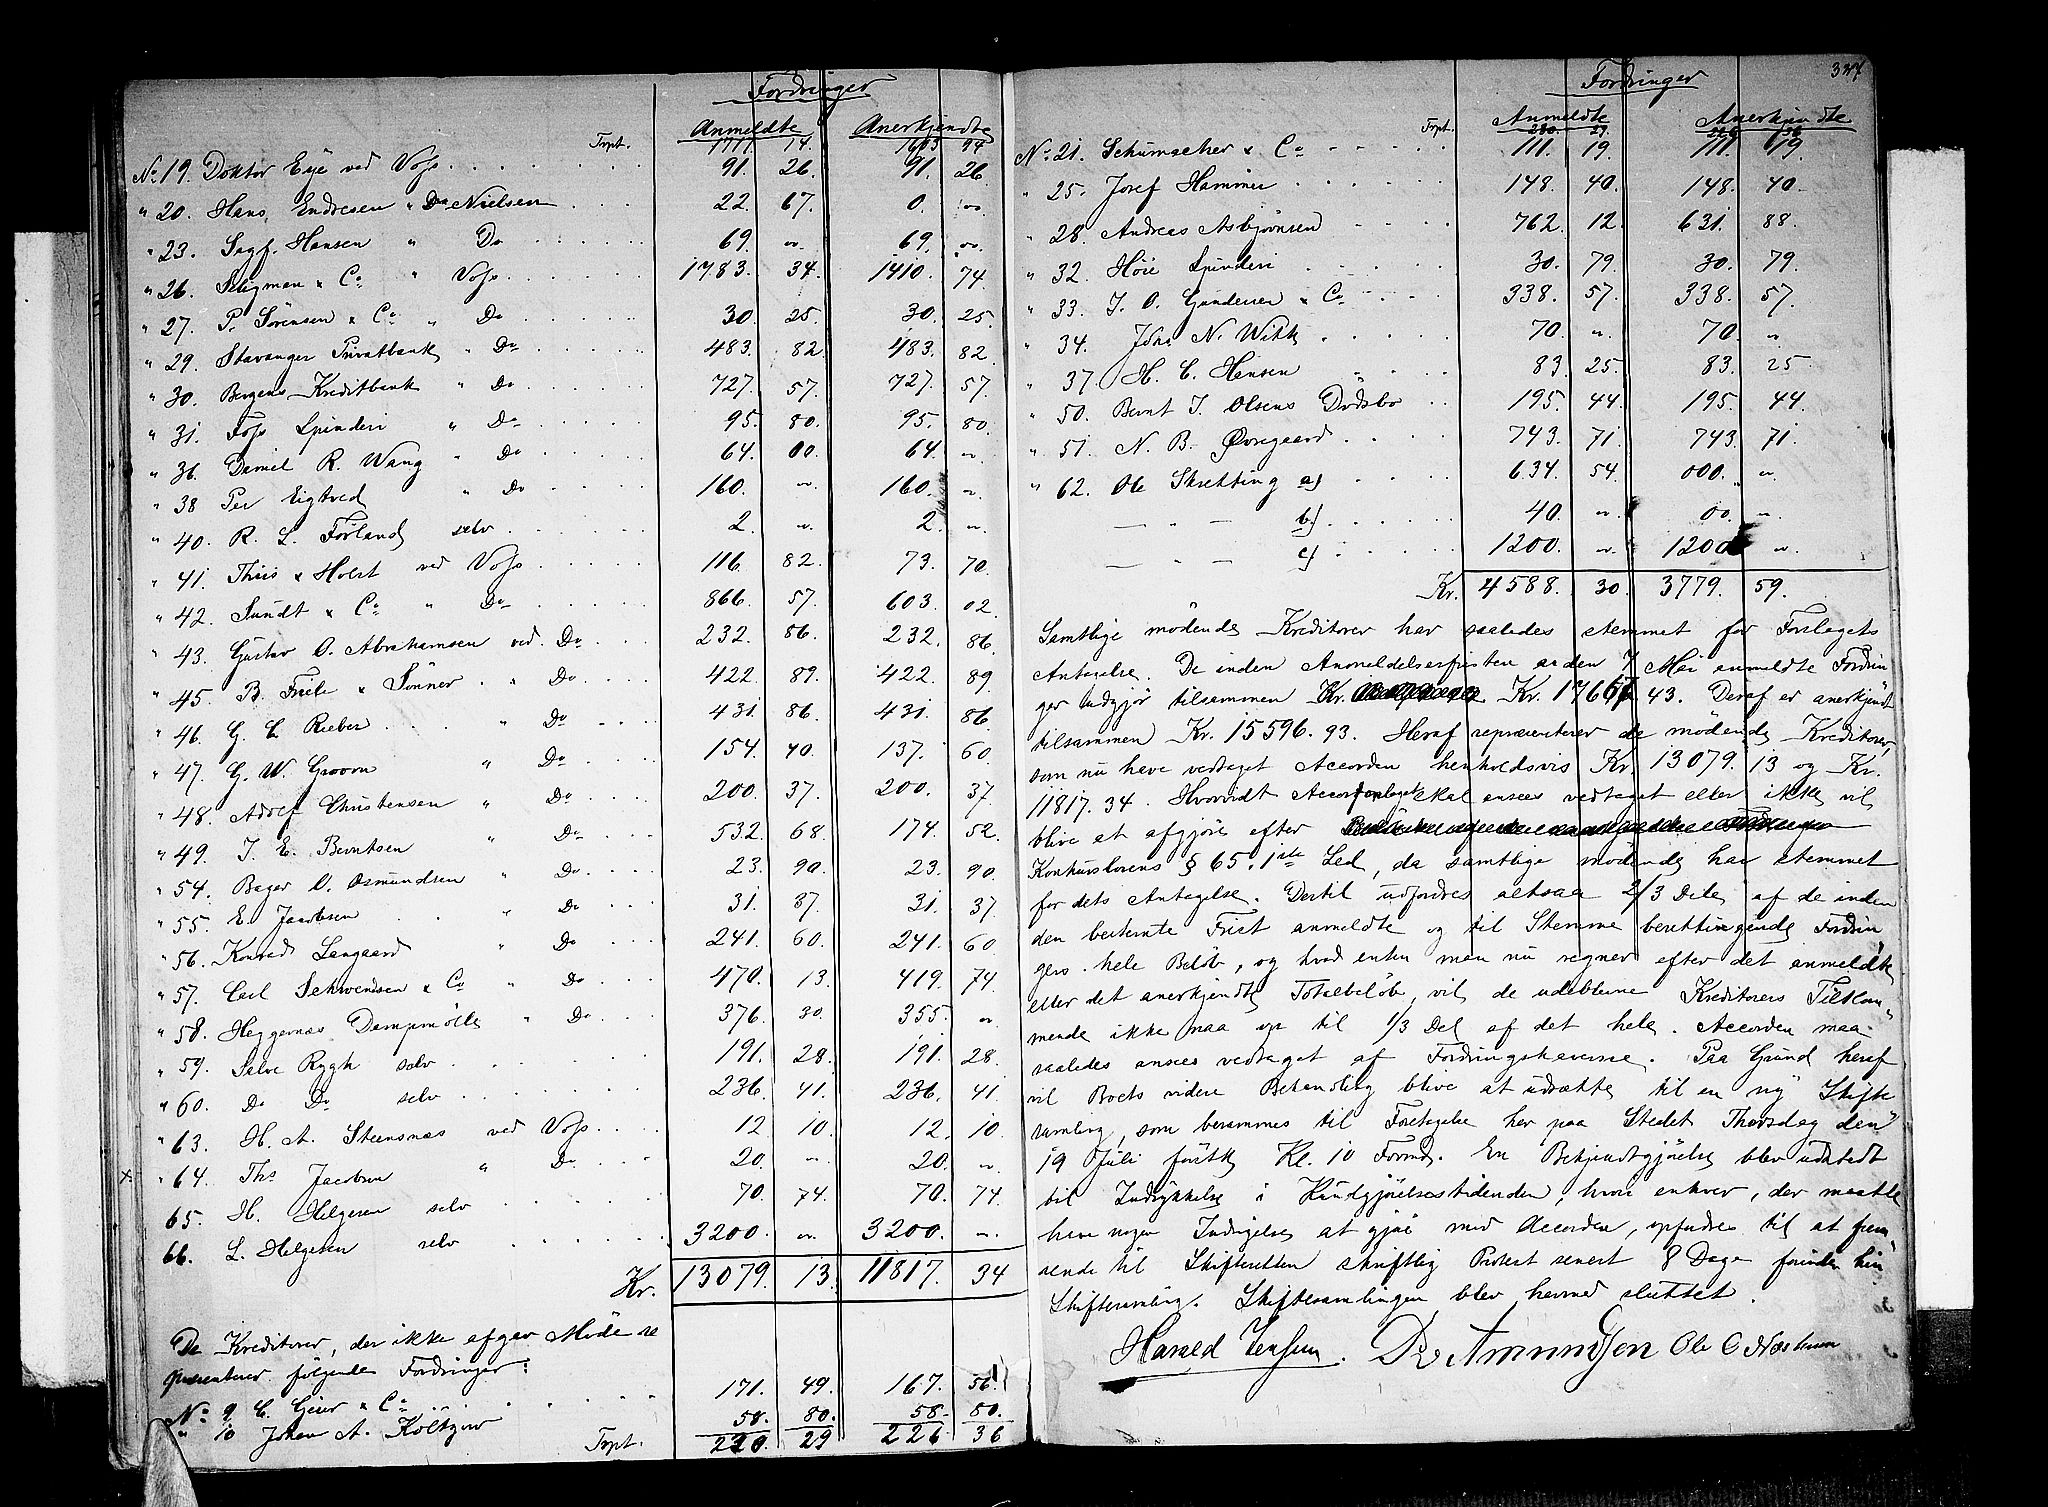 Fordringer
Anmeldte Anerkjendte
Trpt. 1711. 14. 1603 94
No 19. Doktor Eye ved Voss 91. 26. 91. 26
" 20. Hans Endresen " Do Nielsen 22. 67. 0. "
" 23. Sagf. Hansen " Do 69. " 69. "
" 26. Seligman & Co " Voss 1783. 34. 1410. 74
" 27. P. Sörensen & Co " Do 30. 25. 30. 25.
" 29. Stavanger Privatbank " Do 483. 82 483. 82
" 30. Bergens Kreditbank " Do 727. 57. 727. 57.
" 31. Foss Spinderi " Do 95. 80. 95. 80.
" 36. Daniel R. Wang " Do 64. 00. 64. "
" 38 Per Eigtved " Do 160. " 160. "
" 40. R. L. Förland selv 2. " 2. "
" 41. Thiis & Holst ved Voss 116. 82. 73. 70.
" 42. Sundt & Co " Do 866. 57. 603. 02
" 43. Gustav O. Abrahamsen ved. Do 232. 86. 232. 86
" 45. B. Friele & Sönner " Do 422. 89. 422. 89
" 46. G. C. Rieber " Do 431. 86. 431. 86
" 47. G. W. Groom " Do 154. 40. 137. 60
" 48. Adolf Christensen " Do 200. 37. 200. 37
" 49. J. E. Berntsen " Do 532. 68. 174. 52
" 54. Bager O. Osmundsen " Do 23. 90. 23. 90
" 55. E. Jacobsen " Do 31. 37. 31. 37
" 56. Konrad Langaard " Do 241. 60. 241. 60
" 57. Carl Schwendsen & Co " Do 470. 13. 419. 74
" 58. Heggernæs Dampmölle " Do 376. 30. 355. "
" 59. Salve Rygh selv 191. 28. 191. 28
" 60. Do Do selv 236. 41. 236. 41
" 63. H. A. Steensnæs ved Voss 12 10. 12. 10
" 64. Ths Jacobsen " Do 20. " 20. "
65. H. Helgesen selv 70. 74. 70. 74
66. L. Helgesen selv 3200. " 3200. "
Kr. 13079. 13. 11817. 34
De Kreditorer, der ikke afgav Möde re
præsenterer følgende Fordringer:
No 9 C. Geier & Co 171. 49. 167. 56
" 10 Johan A. Költzow 58. 80. 58. 80.
Trpt. 230. 29 226 36
327
Fordringer
Anmeldte Anerkjendte
Trpt. 230. 29. 226 36
No 21. Schumacher & Co 111. 19. 111. 19.
" 25. Josef Hammer 148. 40. 148. 40.
" 28. Andreas Asbjørnsen 762. 12. 631. 88.
" 32. Höie Spinderi 30. 79. 30. 79.
" 33. J. O. Gundersen & Co 338. 57. 338. 57.
" 34. Johs N. Witt 70. " 70. "
" 37. H. C. Hansen 83. 25. 83. 25
" 50. Bernt J. Olsens Dödsbo 195. 44. 195. 44.
" 51. N. B. Øvregaard 743. 71. 743. 71.
" 62. Ole Skretting a) 634. 54. 000. "
— " — b) 40. " 00. "
— " — c) 1200. " 1200 "
Kr. 4588. 30. 3779. 59.
Samtlige mödende Kreditorer har saaledes stemmet for Forslagets
Antagelse. De inden Anmeldelsesfristen den 7 Mai anmeldte Fordrin
ger udgjør tilsammen Kr. 43. Deraf er anerkjendt
tilsammen Kr. 15596. 93. Heraf repræsenterer de mödende Kreditorer,
som nu have vedtaget Accorden henholdsvis Kr. 13079. 13 og Kr.
11817. 34. Hvorvidt Accordforslaget skal ansees vedtaget eller ikke vil
blive at afgjöre efter
Konkurslovens § 65. 1ste Led, da samtlige mödende har stemmet
for dets Antagelse. Dertil udfordres altsaa 2/3 Dele af de inden
den bestemte Frist anmeldte og til Stemme berettigende Fordrin
gers hele Belöb, og hvad enten man nu regner efter det anmeldte
eller det anerkjendte Totalbelöb, vil de udeblevne Kreditorers Tilkom
mende ikke naa op til 1/3 Del af det hele. Accorden maa
saaledes ansees vedtaget af Fordringshaverne. Paa Grund heraf
vil Boets videre Behandling blive at udsætte til en ny Skifte
samling, som berammes til Foretagelse her paa Stedet Thorsdag den
19 Juli förstk Kl. 10 Formd. En Bekjendtgjörelse blev udstedt
til Indrykkelse i Kundgjörelsestidenden, hvori enhver, der maatte
have nogen Indsigelse at gjöre mod Accorden, opfordres til at frem
sende til Skifteretten skriftlig Protest senest 8 Dage forinden hin
Skiftesamling. Skiftesamlingen blev hermed sluttet.
Harald Jensen. Amundsen Ole C